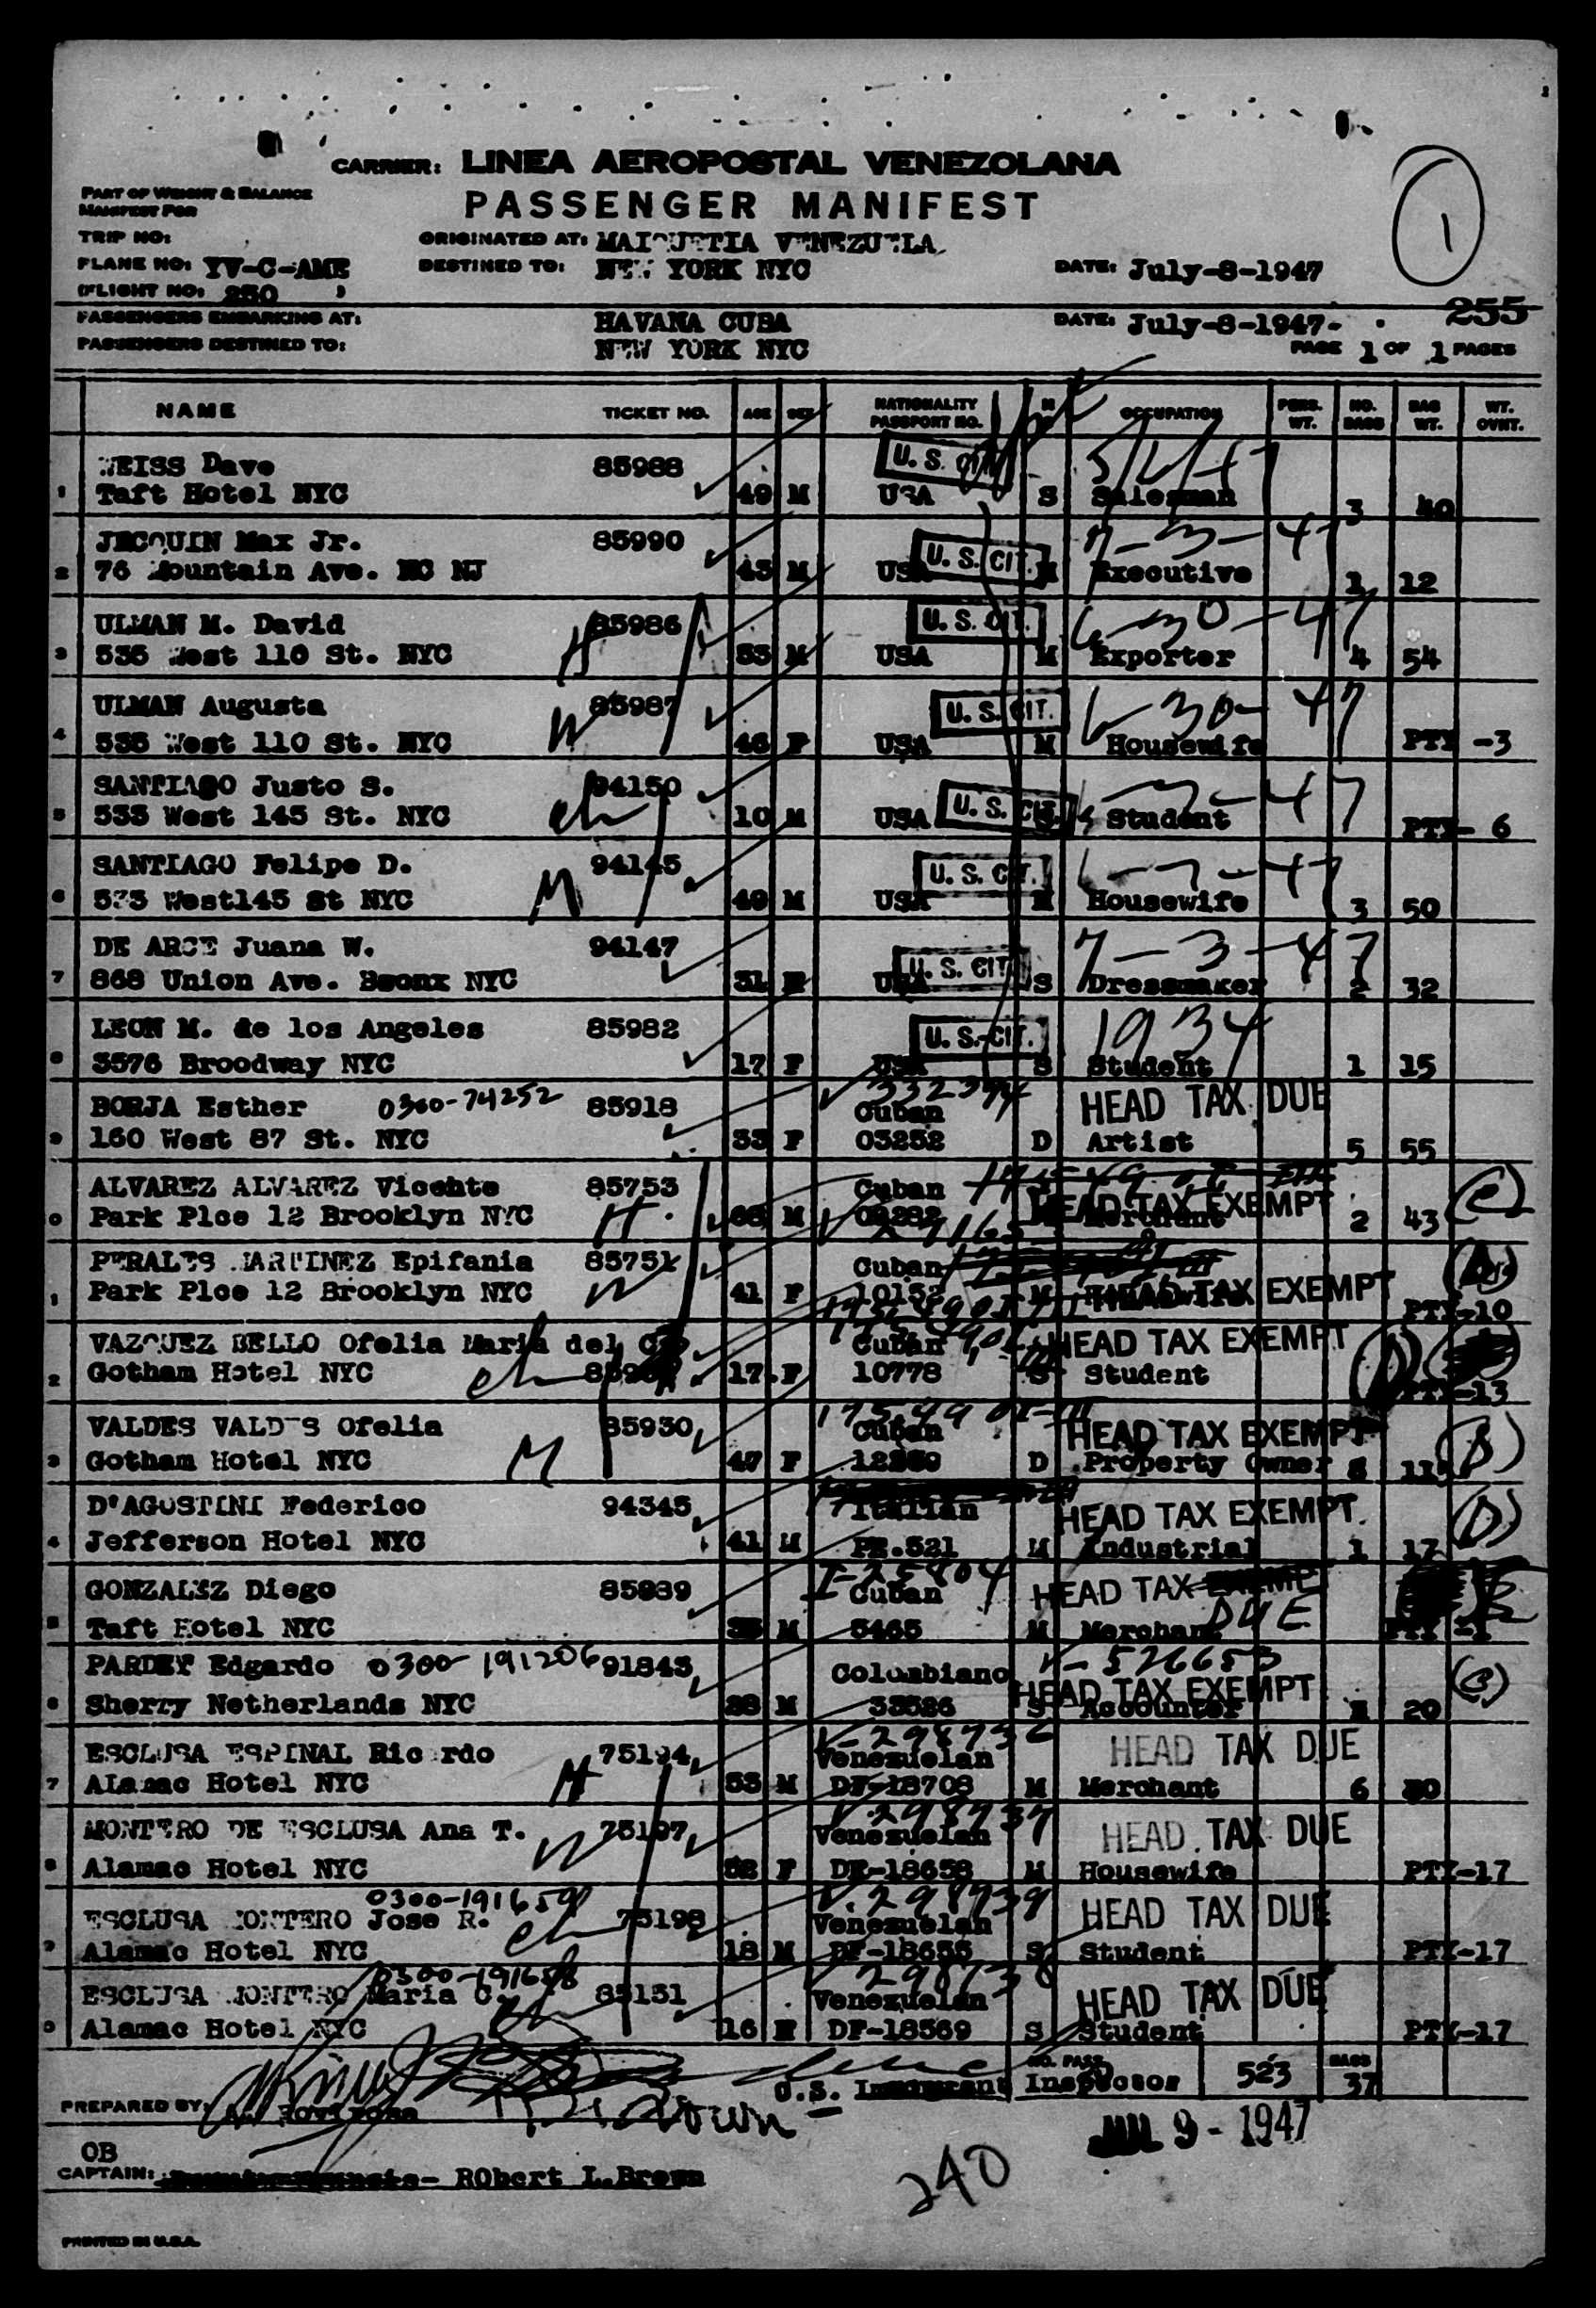 CARRIER: LINEA AEROPOSTAL VENEZOLANA
PART OF WEIGHT & BALANCE
MANIFEST FOR
PASSENGER MANIFEST
1
TRIP NO:
ORIGINATED AT: MAIQUETIA VENEZUELA
PLANE NO: YV-C-AME
DESTINED TO: NEW YORK NYC
DATE: July-8-1947
(FLIGHT NO: 250 )
255
PASSENGERS EMBARKING AT: HAVANA CUBA
DATE: July-8-1947-
PASSENGERS DESTINED TO: NEW YORK NYC
PAGE 1 OF 1 PAGES
NAME TICKET NO. AGE SEX NATIONALITY PASSPORT NO. OCCUPATION PERS. WT. NO. BAGS BAG WT. WT. OVNT.
WEISS Dave 85988 U. S.
1 Taft Hotel NYC 49 M USA S Salesman 3 40
JECQUIN Max Jr. 85990 U. S. CIT. 7-3-47
2 76 Mountain Ave. NC NJ 43 M USA M Executive 1 12
ULMAN M. David 85986 U. S. CIT. 6-30-47
3 535 West 110 St. NYC H 53 M USA M Exporter 4 54
ULMAN Augusta 85987 U. S. CIT. 6-30-47
4 535 West 110 St. NYC W 46 F USA M Housewife PTY -3
SANTIAGO Justo S. 94150 U. S. CIT. 47
5 533 West 145 St. NYC ch 10 M USA S Student PTY- 6
SANTIAGO Felipe D. 94145 U. S. CIT. 47
6 533 West145 St NYC M 49 M USA M Housewife 3 50
DE ARCE Juana W. 94147 U. S. CIT. 7-3-47
7 868 Union Ave. Bronx NYC 31 USA S Dressmaker 2 32
LEON M. de los Angeles 85982 U. S. CIT. 1934
8 3576 Broodway NYC 17 F USA S Student 1 15
BORJA Esther 0300-74252 85918 Cuban HEAD TAX DUE
9 160 West 87 St. NYC 33 F 03252 D Artist 5 55
ALVAREZ ALVAREZ Vicente 85753 Cuban HEAD TAX EXEMPT
0 Park Plce 12 Brooklyn NYC H. M Merchant 2 43
PERALES MARTINEZ Epifania 85751 Cuban HEAD TAX EXEMPT
1 Park Plce 12 Brooklyn NYC W 41 F 10152 M PTY-10
VAZQUEZ BELLO Ofelia Maria del Cuban HEAD TAX EXEMPT
2 Gotham Hotel NYC ch 17 F 10778 S Student PTY-13
VALDES VALDES Ofelia 85930 Cuban HEAD TAX EXEMPT
3 Gotham Hotel NYC M 47 F D Property Owner
D'AGOSTINI Federico 94345 Italian HEAD TAX EXEMPT
4 Jefferson Hotel NYC 41 M PE.521 M Industrial 1 17
GONZALEZ Diego 85939 Cuban HEAD TAX DUE
5 Taft Hotel NYC M 5465 M Merchant
PARDEY Edgardo 0300-191206 91843 Colombiano V-526653
6 Sherry Netherlands NYC 38 M 33526 S HEAD TAX EXEMPT 20
ESCLUSA ESPINAL Ricardo 75194 Venezuelan HEAD TAX DUE
7 ALamac Hotel NYC H 53 M DF-18708 M Merchant 6 80
MONTERO DE ESCLUSA Ana T. 75197 V-298737 Venezuelan HEAD TAX DUE
8 Alamac Hotel NYC W 52 F DF-18658 M Housewife PTY-17
0300-191659
ESCLUSA MONTERO Jose R. 75198 Venezuelan HEAD TAX DUE
9 Alamac Hotel NYC ch 18 M DF-18655 S Student PTY-17
0300-191658
ESCLUSA MONTERO Maria C. 85151 Venezuelan HEAD TAX DUE
0 Alamac Hotel NYC ch 16 F DF-18569 S Student PTY-17
U.S. Immigrant Inspector NO. PASS. 523 BAGS 37
PREPARED BY:
JUL 9 - 1947
OB
CAPTAIN: - RObert L.Brown
240
PRINTED IN U.S.A.